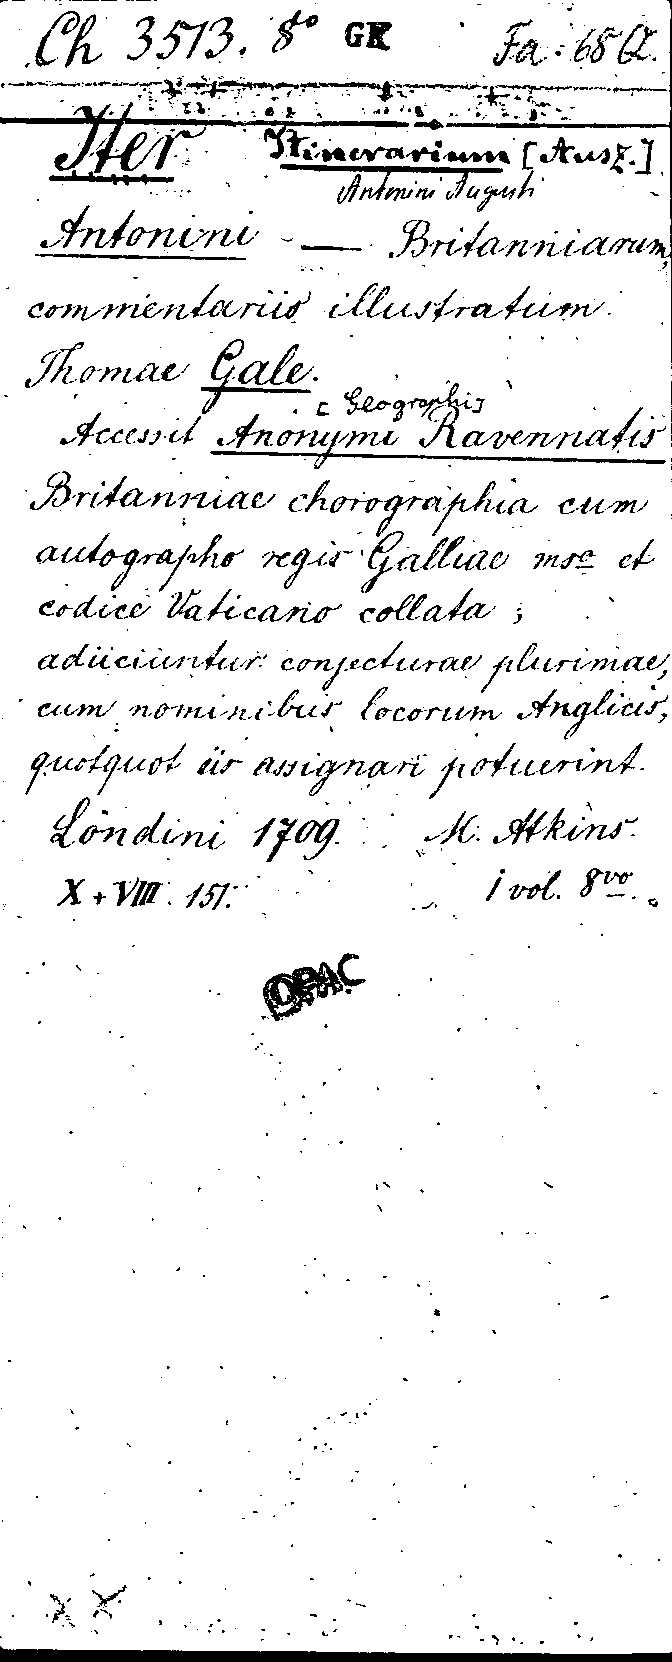 Ch 3513. 8° GK Fa. 68 Q.
Iter Itinerarium [Ausz.]
Antonini Augusti
Antonini - — Britanniarum,
commentariis illustratum
Thomae Gale.
[Geographis]
Accessit Anonymi Ravennatis
Britanniae chorographia cum
autographo regis Galliae msc et
codice Vaticano collata;
adiiciuntur conjecturae plurimae,
cum nominibus locorum Anglicis,
quotquot iis assignari potuerint.
Londini 1709. M. Atkins.
X + VIII. 151. 1 vol. 8vo.
OPAC
X X